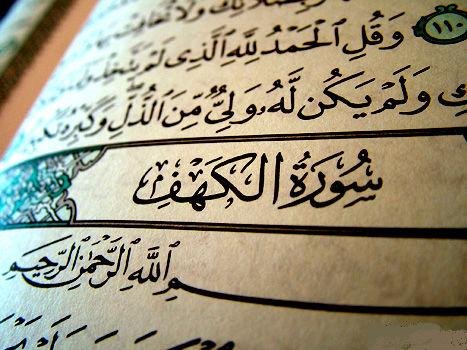 بِصَلَاتِكَ وَلَا تُخَافِتْ بِهَا
١١٠ وَقُلِ ٱلْحَمْدُ لِلَّهِ ٱلَّذِى لَمْ يَتَّخِذْ
وَلَمْ يَكُن لَّهُۥ وَلِىٌّ مِّنَ ٱلذُّلِّ وَكَبِّرْهُ
سُورَةُ الكَهْفِ
بِسْمِ ٱللَّهِ ٱلرَّحْمَٰنِ ٱلرَّحِيمِ